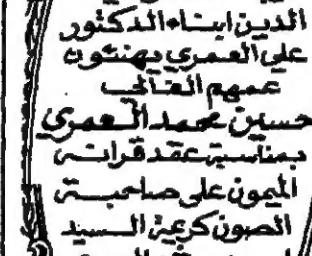 الدين ابناء الدكتور
علي العمري يهنئون
عمهم الغالي
حسين محمد العمري
بمناسبة عقد قرانه
الميمون على صاحبة
الصون كريمة السيد